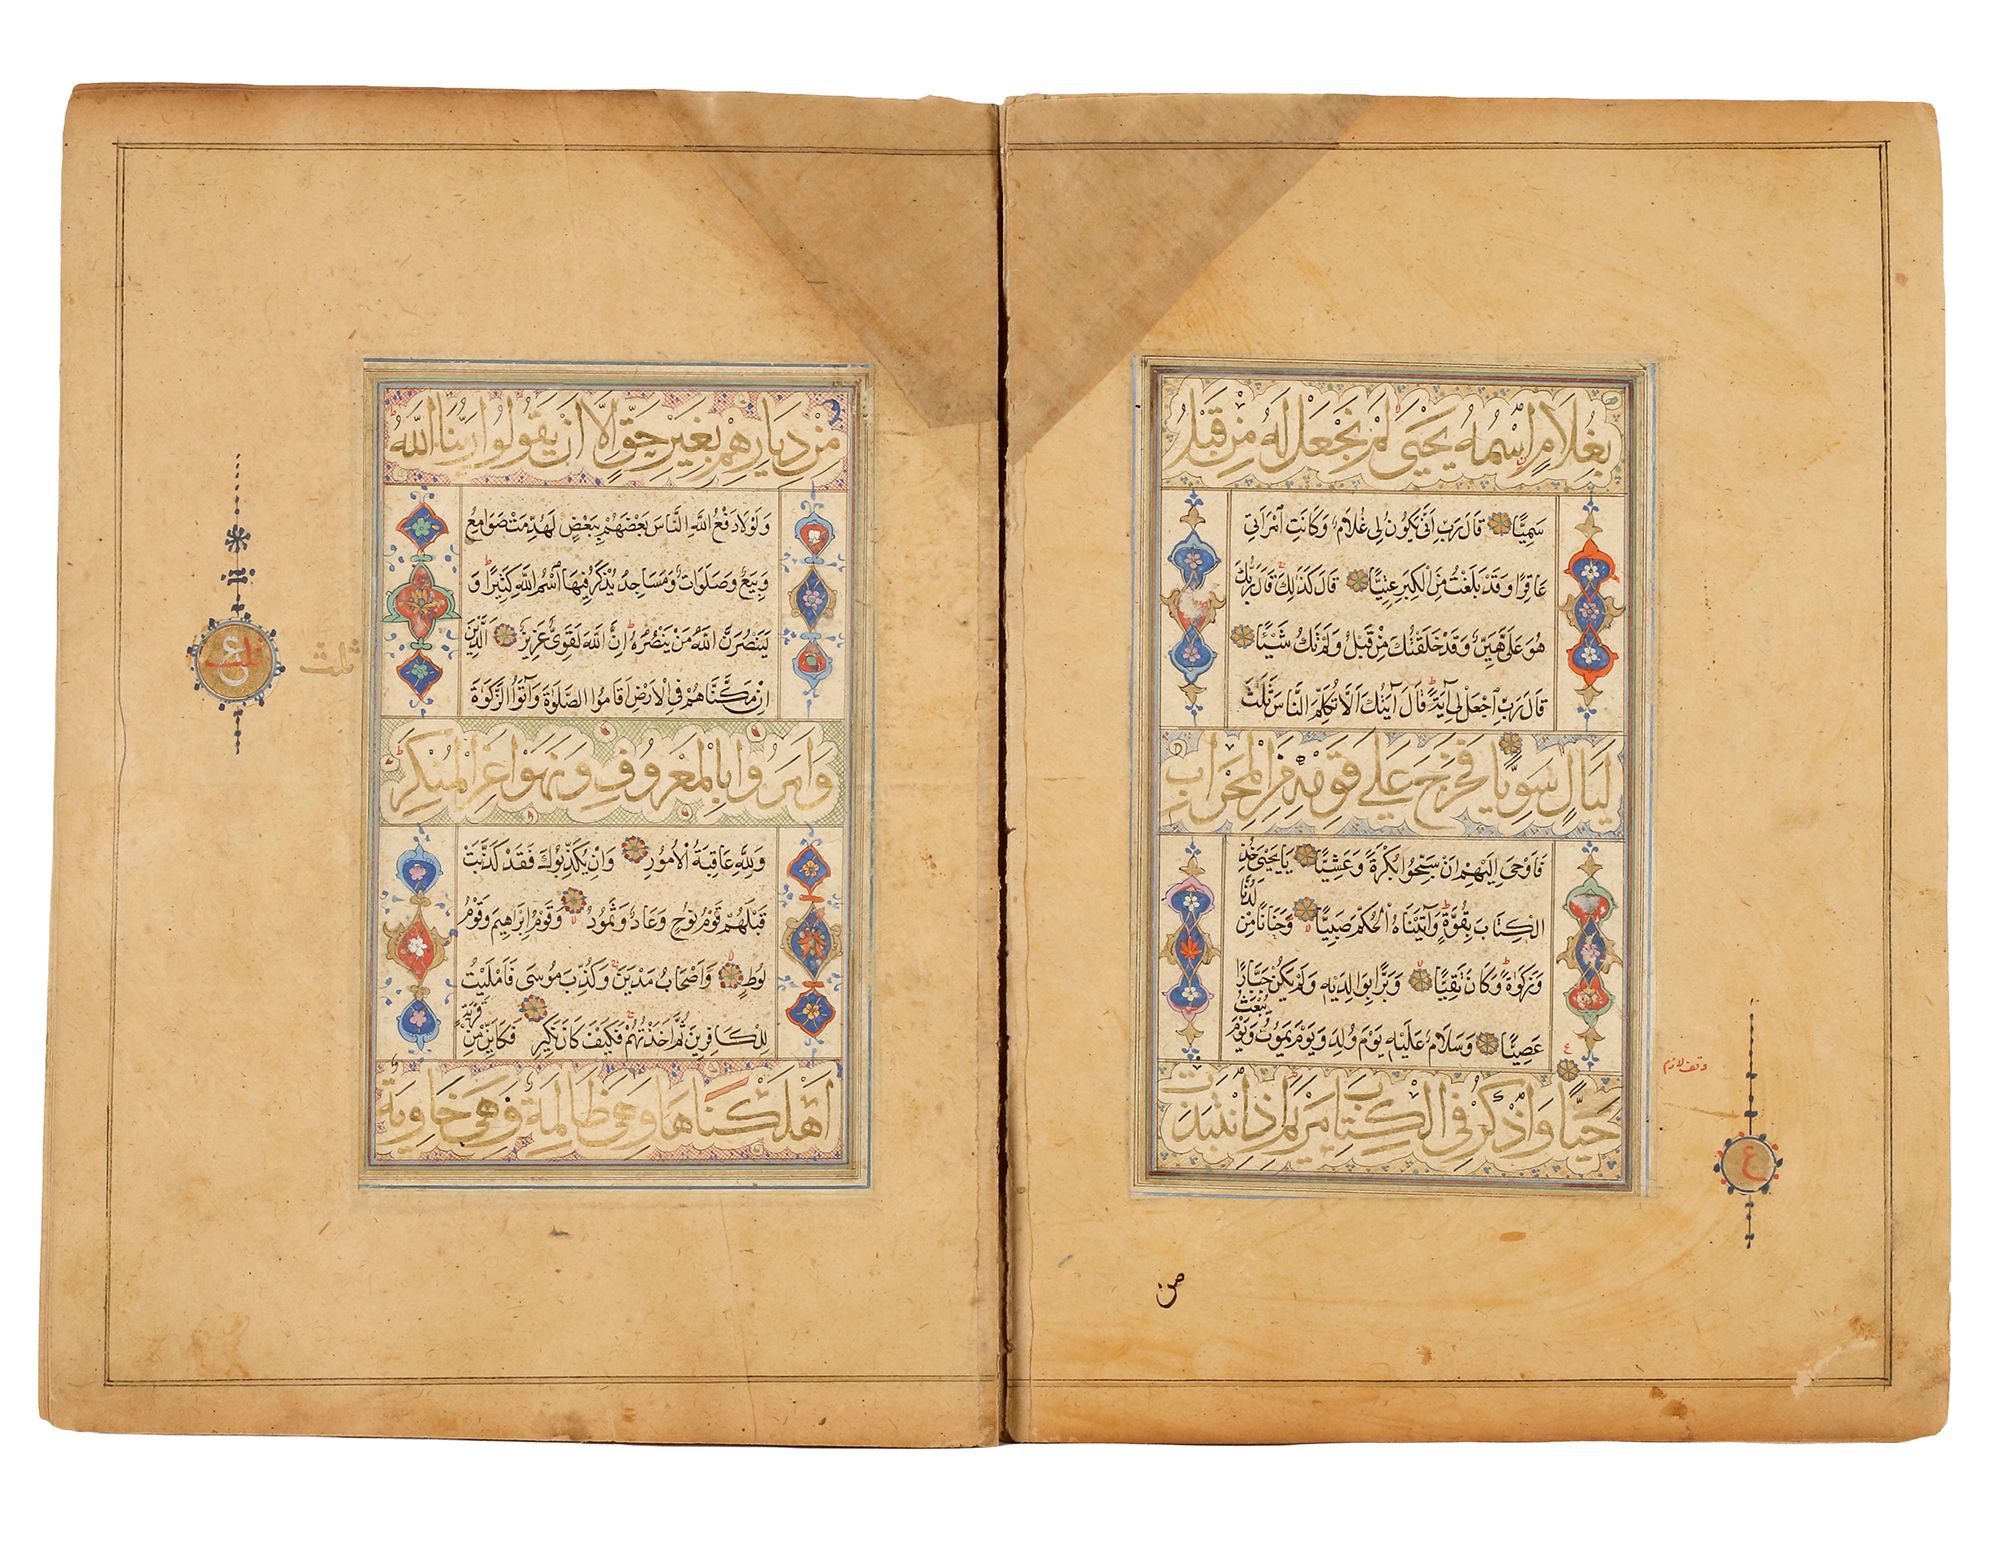 بِغُلَامٍ اسْمُهُ يَحْيَى لَمْ نَجْعَلْ لَهُ مِنْ قَبْلُ
سَمِيًّا قَالَ رَبِّ أَنَّى يَكُونُ لِي غُلَامٌ وَكَانَتِ امْرَأَتِي
عَاقِرًا وَقَدْ بَلَغْتُ مِنَ الْكِبَرِ عِتِيًّا قَالَ كَذَلِكَ قَالَ رَبُّكَ
هُوَ عَلَيَّ هَيِّنٌ وَقَدْ خَلَقْتُكَ مِنْ قَبْلُ وَلَمْ تَكُ شَيْئًا
قَالَ رَبِّ اجْعَلْ لِي آيَةً قَالَ آيَتُكَ أَلَّا تُكَلِّمَ النَّاسَ ثَلٰثَ
لَيَالٍ سَوِيًّا فَخَرَجَ عَلَى قَوْمِهِ مِنَ الْمِحْرَابِ
فَأَوْحَى إِلَيْهِمْ أَنْ سَبِّحُوا بُكْرَةً وَعَشِيًّا يَا يَحْيَى خُذِ
الْكِتَابَ بِقُوَّةٍ وَآتَيْنَاهُ الْحُكْمَ صَبِيًّا وَحَنَانًا مِنْ لَدُنَّا
وَزَكٰوةً وَكَانَ تَقِيًّا وَبَرًّا بِوَالِدَيْهِ وَلَمْ يَكُنْ جَبَّارًا
عَصِيًّا وَسَلَامٌ عَلَيْهِ يَوْمَ وُلِدَ وَيَوْمَ يَمُوتُ وَيَوْمَ يُبْعَثُ
حَيًّا وَاذْكُرْ فِي الْكِتَابِ مَرْيَمَ إِذِ انْتَبَذَتْ
وقف لازم
ع
مِنْ دِيَارِهِمْ بِغَيْرِ حَقٍّ إِلَّا أَنْ يَقُولُوا رَبُّنَا اللَّهُ
وَلَوْلَا دَفْعُ اللَّهِ النَّاسَ بَعْضَهُمْ بِبَعْضٍ لَهُدِّمَتْ صَوَامِعُ
وَبِيَعٌ وَصَلَوَاتٌ وَمَسَاجِدُ يُذْكَرُ فِيهَا اسْمُ اللَّهِ كَثِيرًا وَ
لَيَنْصُرَنَّ اللَّهُ مَنْ يَنْصُرُهُ إِنَّ اللَّهَ لَقَوِيٌّ عَزِيزٌ الَّذِينَ
إِنْ مَكَّنَّاهُمْ فِي الْأَرْضِ أَقَامُوا الصَّلٰوةَ وَآتَوُا الزَّكٰوةَ
وَأَمَرُوا بِالْمَعْرُوفِ وَنَهَوْا عَنِ الْمُنْكَرِ
وَلِلَّهِ عَاقِبَةُ الْأُمُورِ وَإِنْ يُكَذِّبُوكَ فَقَدْ كَذَّبَتْ
قَبْلَهُمْ قَوْمُ نُوحٍ وَعَادٌ وَثَمُودُ وَقَوْمُ إِبْرَاهِيمَ وَقَوْمُ
لُوطٍ وَأَصْحَابُ مَدْيَنَ وَكُذِّبَ مُوسَى فَأَمْلَيْتُ
لِلْكَافِرِينَ ثُمَّ أَخَذْتُهُمْ فَكَيْفَ كَانَ نَكِيرِ فَكَأَيِّنْ مِنْ قَرْيَةٍ
أَهْلَكْنَاهَا وَهِيَ ظَالِمَةٌ فَهِيَ خَاوِيَةٌ
ثلث
ع
ثلث